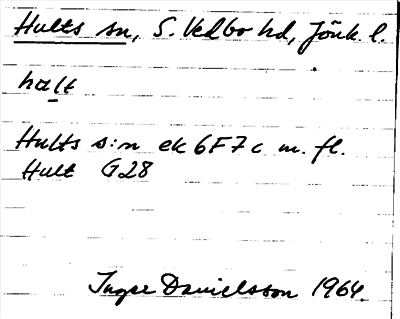 Hults sn, S. Vedbo hd, Jönk. l.
halt
Hults s:n ek 6F7c m. fl.
Hult G28
Ingar Danielsson 1964.